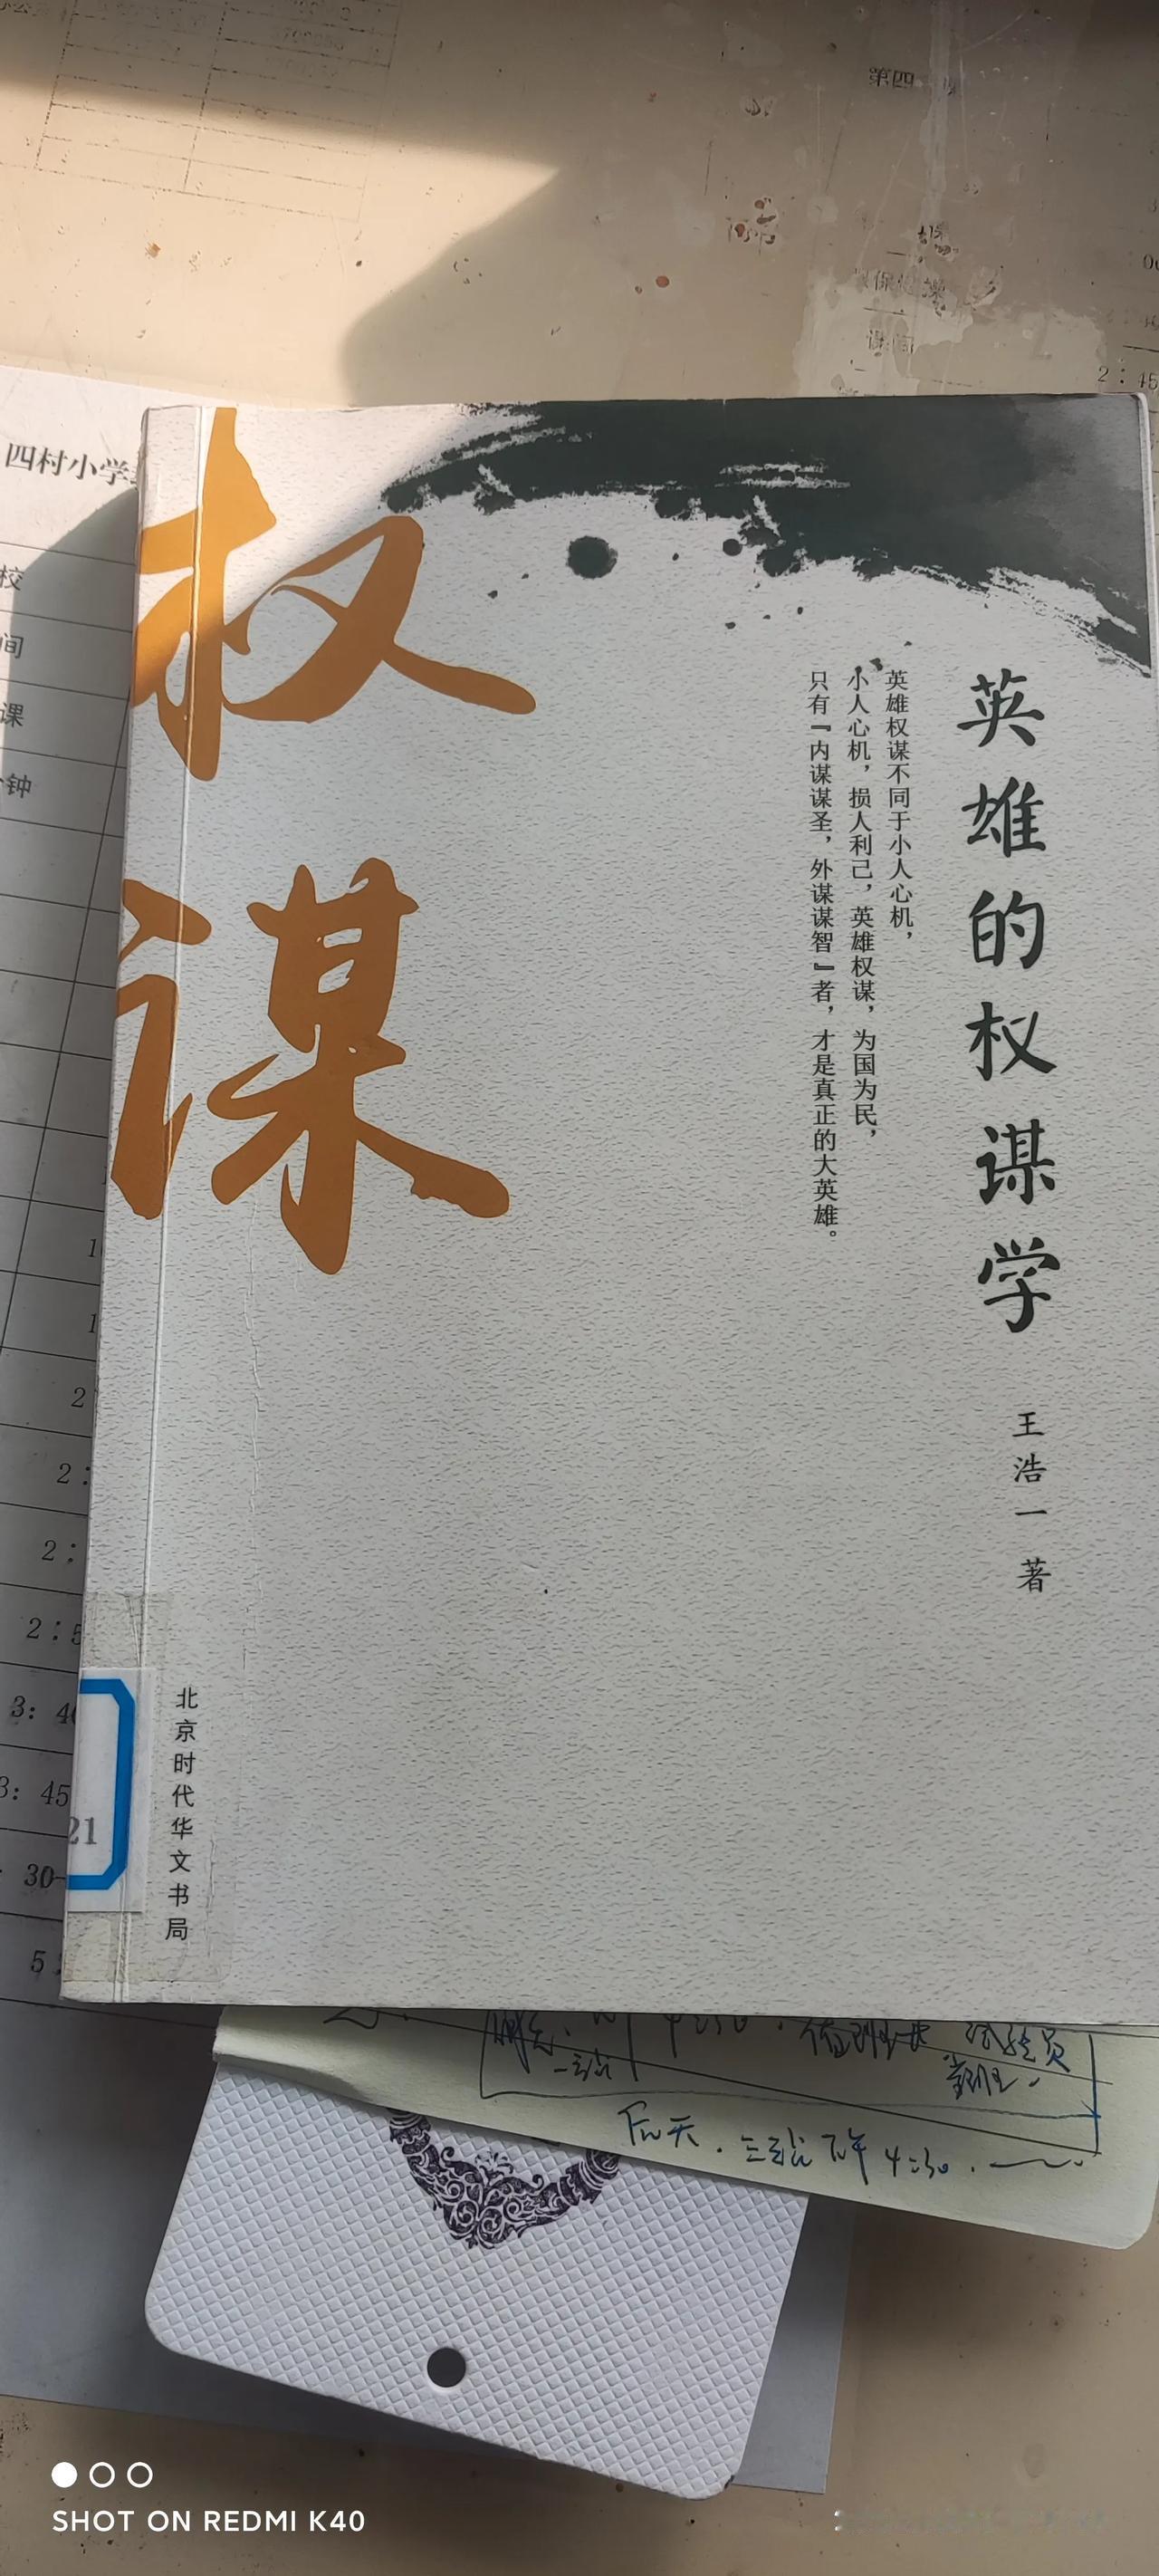 第四
课间
2：45
四村小学
校
间
课
钟
权谋
英雄的权谋学
王浩一 著
英雄权谋不同于小人心机，
小人心机，损人利己，英雄权谋，为国为民，
只有『内谋谋圣，外谋谋智』者，才是真正的大英雄。
2
2：
2：
2：5
3：4
3：45
30
5：
21
北京时代华文书局
后天．三站下午4:30．
SHOT ON REDMI K40